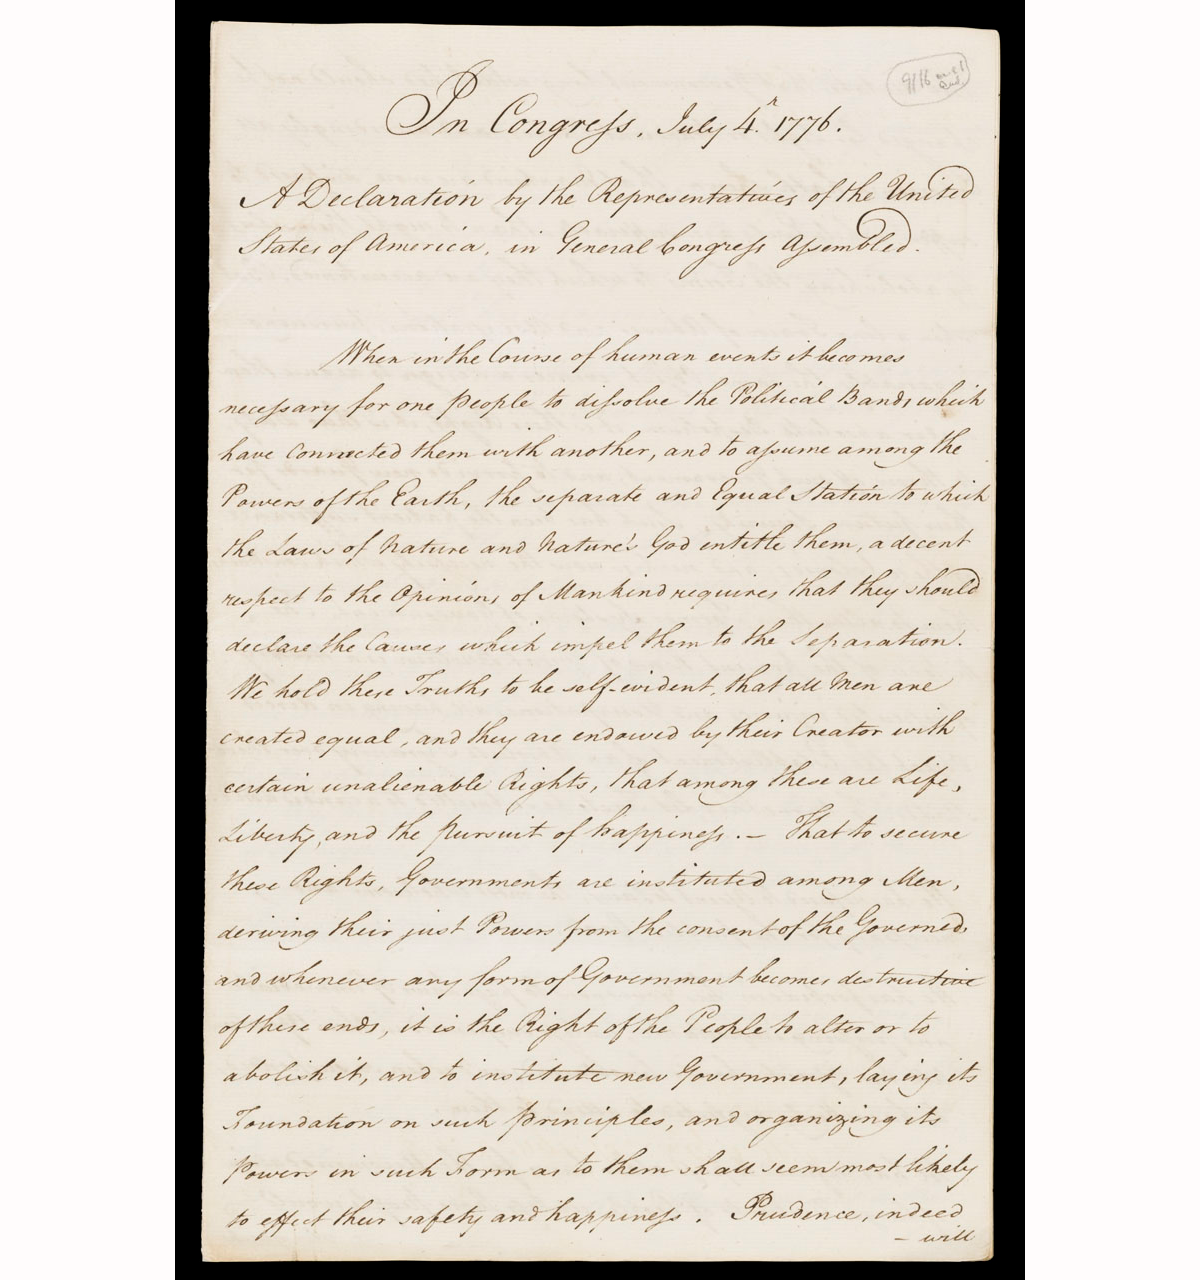 In Congress, July 4. 1776.
A Declaration by the Representatives of the United
States of America, in General Congress Assembled.
When in the Course of human events it becomes
necessary for one People to dissolve the Political Bands which
have connected them with another, and to assume among the
Powers of the Earth, the separate and Equal Station to which
the Laws of Nature and Nature's God entitle them, a decent
respect to the Opinions of Mankind requires that they should
declare the Causes which impel them to the Separation.
We hold these Truths to be self-evident, that all Men are
created equal, and they are endowed by their Creator with
certain unalienable Rights, that among these are Life,
Liberty, and the pursuit of happiness. — That to secure
these Rights, Governments are instituted among Men,
deriving their just Powers from the consent of the Governed,
and whenever any form of Government becomes destructive
of these ends, it is the Right of the People to alter or to
abolish it, and to institute new Government, laying its
Foundation on such principles, and organizing its
Powers in such Form as to them shall seem most likely
to effect their safety and happiness. Prudence, indeed
– will